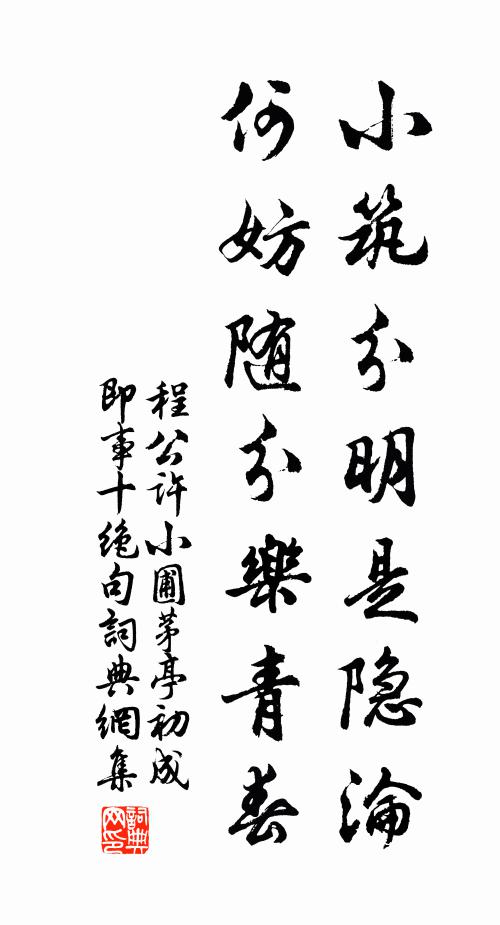 小筑分明是隐淪
何妨随分樂青春
程公許小圃茅亭初成
即事十絶句詞典網集
詞典網印